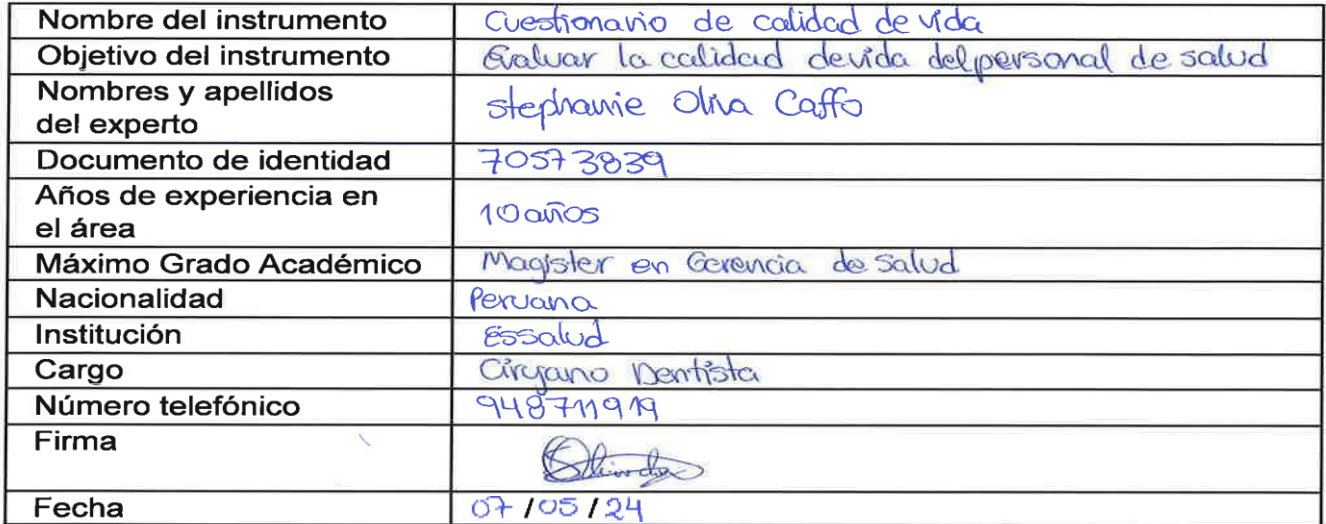 Nombre del instrumento Cuestionario de calidad de vida
Objetivo del instrumento Evaluar la calidad de vida del personal de salud
Nombres y apellidos
del experto Stephanie Oliva Caffo
Documento de identidad 70573839
Años de experiencia en
el área 10 años
Máximo Grado Académico Magister en Gerencia de Salud
Nacionalidad Peruana
Institución Essalud
Cargo Cirujano Dentista
Número telefónico 948711919
Firma
Fecha 07/05/24